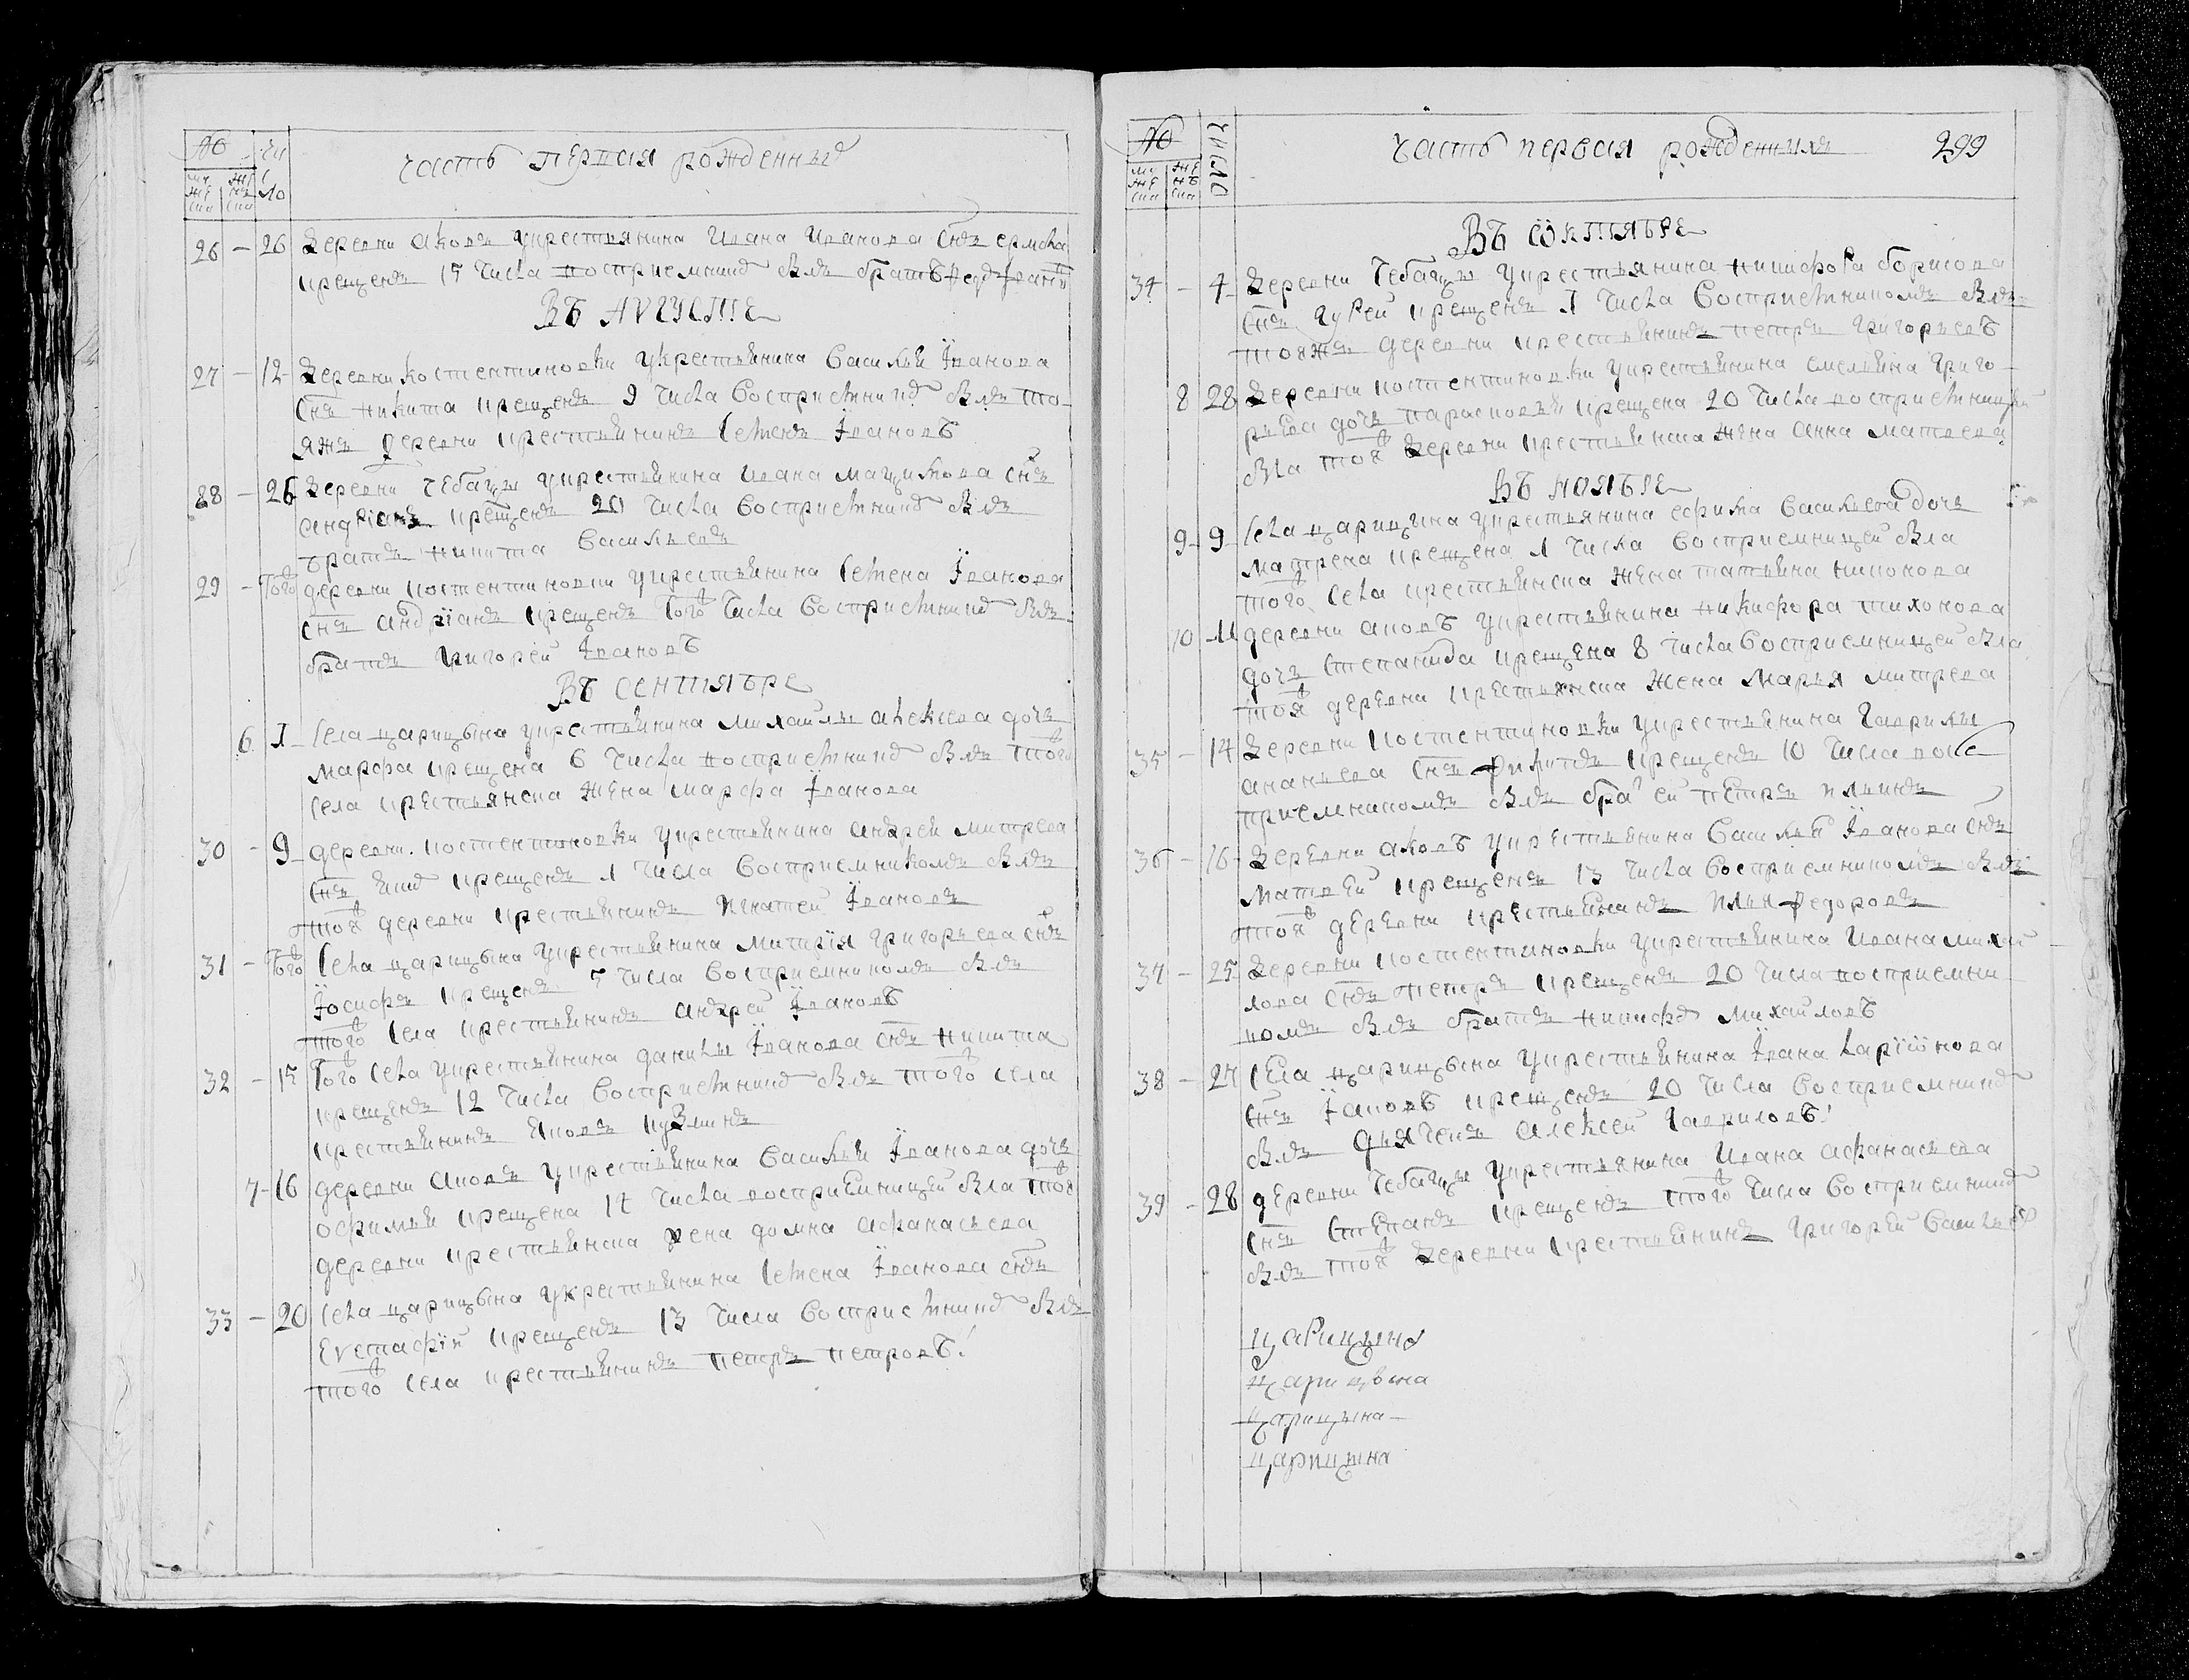 № чи сло
му же ска же нс ка
часть первая рожденныѣ
26 – 26 Деревни аковъ укрестьянина Ивана Иванова снъ ермола
крещенъ 15 числа восприемникъ былъ братъ
Въ Августе
27 – 12 Деревни костентиновки укрестьянина Василья Їванова
снъ никита крещенъ 9 числа восприемникъ былъ то
яжъ деревни крестьянинъ Семенъ Ївановъ
28 – 26 Деревни чебацы укрестьянина Ивана Мацимова снъ
андрїанъ крещенъ 20 числа восприемникъ былъ
братъ никита Васильевъ
29 – того деревни костентиновки укрестьянина Семена Їванова
снъ андрїанъ крещенъ того числа восприемникъ былъ
братъ Григорей Ївановъ
Въ Сентябре
6 1 Села царицына укрестьянина михаилы алексева дочь
марфа крещена 6 числа восприемникъ былъ того
села крестьянска жена марфа Їванова
30 – 9 деревни костентиновки укрестьянина андрей митрева
снъ крещенъ 1 числа восприемникомъ былъ
тоя деревни крестьянинъ Игнатей Ївановъ
31 – того Села царицына укрестьянина митрїя григорьева снъ
Їосифъ крещенъ 5 числа восприемникомъ былъ
того села крестьянинъ андрей Ївановъ
32 – 15 Того села укрестьянина данилы Їванова снъ никита
крещенъ 12 числа восприемникъ былъ того села
крестьянинъ Яковъ кузминъ
7 – 16 деревни аковъ укрестьянина Василья Їванова дочь
офимья крещена 14 числа восприемницей была тоя
деревни крестьянска жена домна афанасьева
33 – 20 Села царицына укрестьянина Семена Їванова снъ
Еустафїй крещенъ 13 числа восприемникъ былъ
того села крестьянинъ петръ петровъ
№ число
му же ска же нс ка
часть первая рожденныя 299
Въ Октябре
34 – 4 Деревни чебацы укрестьянина никифора борисова
снъ гурей крещенъ 1 числа восприемникомъ былъ
тояжъ деревни крестьянинъ петръ григорьевъ
8 28 Деревни костентиновки укрестьянина емельяна григо
рьева дочь парасковья крещена 20 числа восприемницей
была тоя деревни крестьянска жена анна матвева
Въ Ноябре
9 – 9 Села царицына укрестьянина ефима Васильева дочь
матрена крещена 1 числа восприемницей была
того села крестьянска жена татьяна никонова
10 – 11 деревни аковъ укрестьянина никифора тихонова
дочь степанида крещена 8 числа восприемницей была
тоя деревни крестьянска жена марья митрева
35 – 14 Деревни костентиновки укрестьянина Гаврилы
ананьева снъ филипъ крещенъ 10 числа вос
приемникомъ былъ петръ ильинъ
36 – 16 Деревни аковъ укрестьянина Василья Їванова снъ
матвей крещенъ 13 числа восприемникомъ былъ
тоя деревни крестьянинъ илья федоровъ
37 – 25 Деревни костентиновки укрестьянина Ивана михай
лова снъ петръ крещенъ 20 числа восприемни
комъ былъ братъ никифъ михайловъ
38 – 27 Села царицына укрестьянина Їванна Ларїонова
снъ Їаковъ крещенъ 20 числа восприемникъ
былъ дьячекъ алексей гавриловъ
39 – 28 деревни чебацы укрестьянина Ивана афанасьева
снъ степанъ крещенъ того числа восприемникъ
былъ тоя деревни крестьянинъ григорей Васильевъ
царицына
царицына
царицына
царицына